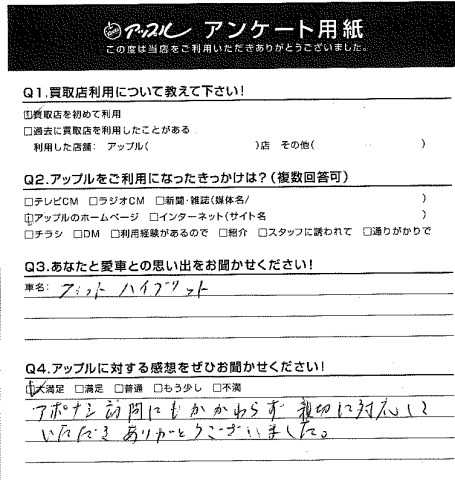 アップル アンケート用紙
この度は当店をご利用いただきありがとうございました。
Q1.買取店利用について教えて下さい!
☑買取店を初めて利用
□過去に買取店を利用したことがある
利用した店舗: アップル( )店 その他( )
Q2.アップルをご利用になったきっかけは?(複数回答可)
□テレビCM □ラジオCM □新聞・雑誌(媒体名/ )
☑アップルのホームページ □インターネット(サイト名 )
□チラシ □DM □利用経験があるので □紹介 □スタッフに誘われて □通りがかりで
Q3.あなたと愛車との思い出をお聞かせください!
車名: フィット ハイブリット
Q4.アップルに対する感想をぜひお聞かせください!
☑大満足 □満足 □普通 □もう少し □不満
アポナシ訪問にもかかわらず 親切に対応して
いただき ありがとうございました。